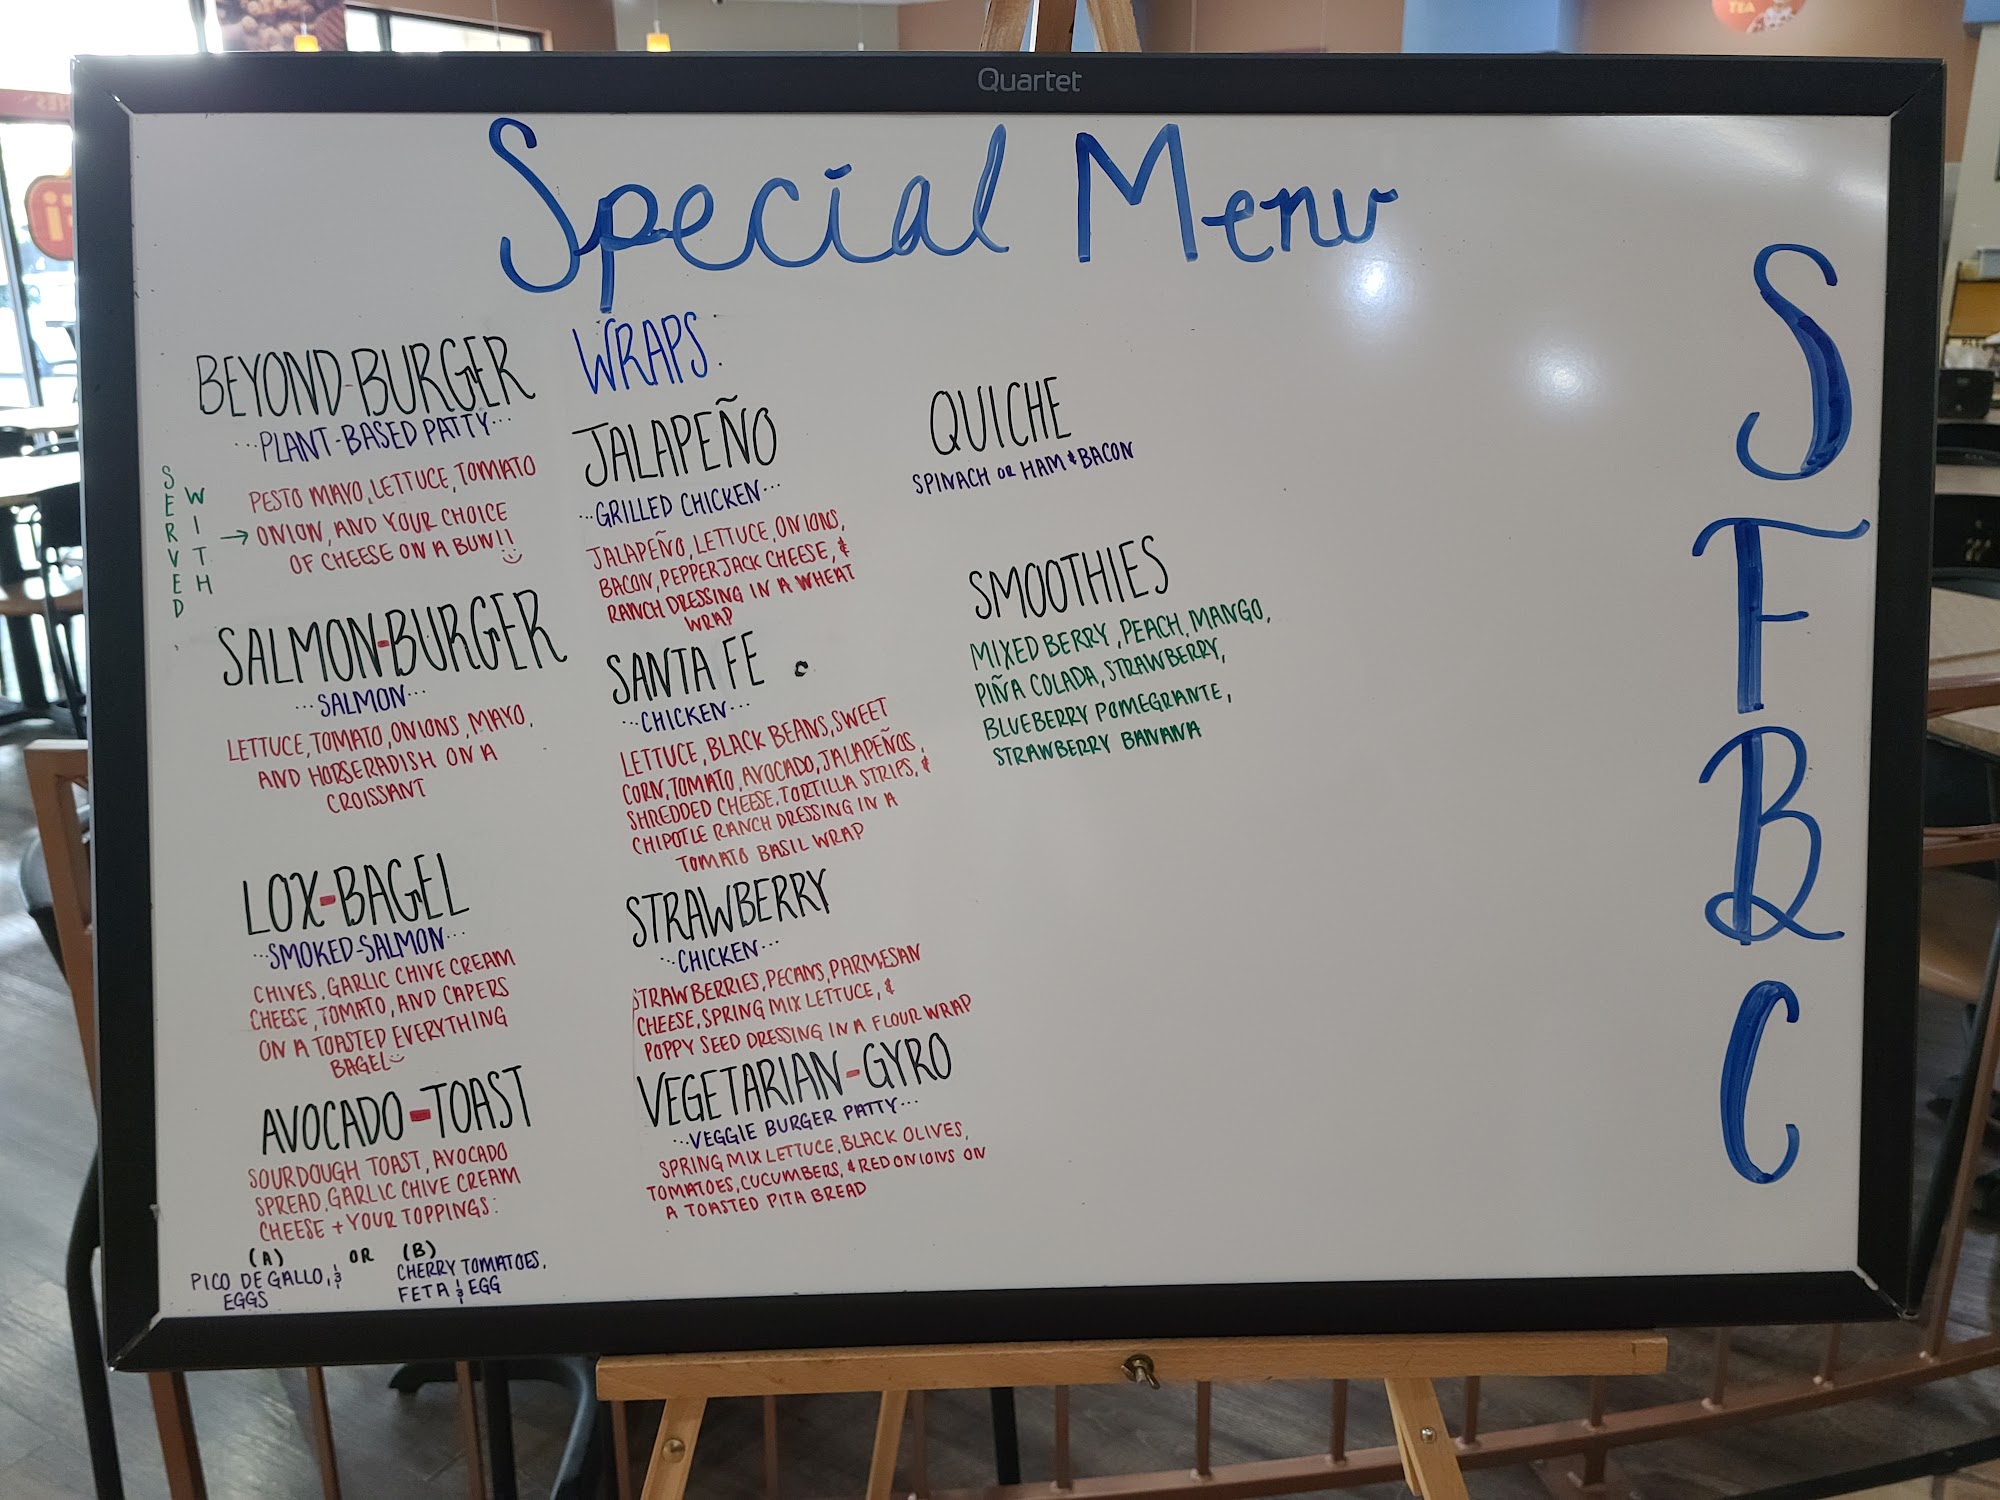 Quartet
Special Menu
BEYOND-BURGER
...PLANT-BASED PATTY...
SERVED
WITH
→
PESTO MAYO, LETTUCE, TOMATO
ONION, AND YOUR CHOICE
OF CHEESE ON A BUN!!
SALMON-BURGER
...SALMON...
LETTUCE, TOMATO, ONIONS, MAYO,
AND HORSERADISH ON A
CROISSANT
LOX-BAGEL
...SMOKED-SALMON...
CHIVES, GARLIC CHIVE CREAM
CHEESE, TOMATO, AND CAPERS
ON A TOASTED EVERYTHING
BAGEL
AVOCADO-TOAST
SOURDOUGH TOAST, AVOCADO
SPREAD, GARLIC CHIVE CREAM
CHEESE + YOUR TOPPINGS:
(A) OR (B)
PICO DE GALLO, &
EGGS
CHERRY TOMATOES,
FETA & EGG
WRAPS
JALAPEÑO
...GRILLED CHICKEN...
JALAPEÑO, LETTUCE, ONIONS,
BACON, PEPPERJACK CHEESE, &
RANCH DRESSING IN A WHEAT
WRAP
SANTA FE
...CHICKEN...
LETTUCE, BLACK BEANS, SWEET
CORN, TOMATO, AVOCADO, JALAPEÑOS,
SHREDDED CHEESE, TORTILLA STRIPS, &
CHIPOTLE RANCH DRESSING IN A
TOMATO BASIL WRAP
STRAWBERRY
...CHICKEN...
STRAWBERRIES, PECANS, PARMESAN
CHEESE, SPRING MIX LETTUCE, &
POPPY SEED DRESSING IN A FLOUR WRAP
VEGETARIAN-GYRO
...VEGGIE BURGER PATTY...
SPRING MIX LETTUCE, BLACK OLIVES,
TOMATOES, CUCUMBERS, & RED ONIONS ON
A TOASTED PITA BREAD
QUICHE
SPINACH OR HAM & BACON
SMOOTHIES
MIXED BERRY, PEACH, MANGO,
PIÑA COLADA, STRAWBERRY,
BLUEBERRY POMEGRANTE,
STRAWBERRY BANANA
S
F
B
C
TEA